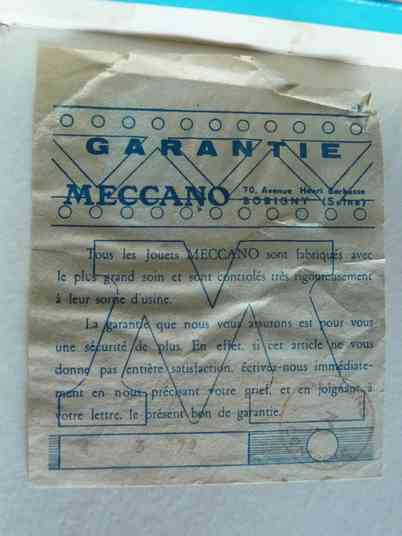 GARANTIE
MECCANO
70, Avenue Henri Barbusse
BOBIGNY (Seine)
Tous les Jouets MECCANO sont fabriqués avec
le plus grand soin et sont contrôlés très rigoureusement
à leur sortie d'usine.
La garantie que nous vous assurons est pour vous
une sécurité de plus. En effet, si cet article ne vous
donne pas entière satisfaction, écrivez-nous immédiate-
ment en nous précisant votre grief, et en joignant à
votre lettre, le présent bon de garantie.